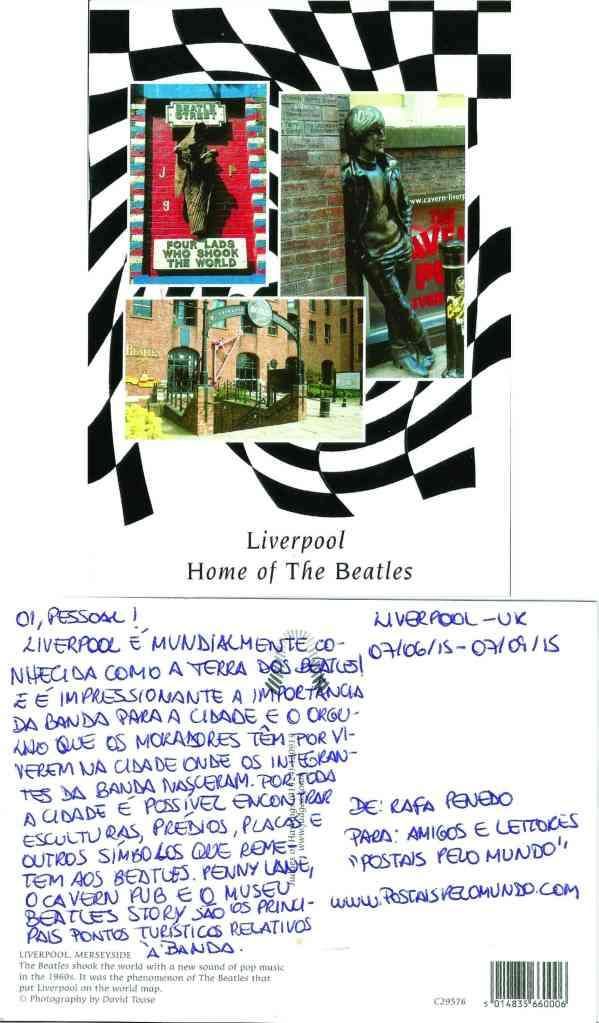 BEATLE
STREET
FOUR LADS
WHO SHOOK
THE WORLD
www.cavern-liverp
THE
Liverpool
Home of The Beatles
OI, PESSOAL!
LIVERPOOL É MUNDIALMENTE CO-
NHECIDA COMO A TERRA DOS BEATLES!
E É IMPRESSIONANTE A IMPORTÂNCIA
DA BANDA PARA A CIDADE E O ORGU-
LHO QUE OS MORADORES TÊM POR VI-
VEREM NA CIDADE ONDE OS INTEGRAN-
TES DA BANDA NASCERAM. POR TODA
A CIDADE É POSSÍVEL ENCONTRAR
ESCULTURAS, PRÉDIOS, PLACAS E
OUTROS SÍMBOLOS QUE REME-
TEM AOS BEATLES. PENNY LANE,
O CAVERN PUB E O MUSEU
BEATLES STORY SÃO OS PRINCI-
PAIS PONTOS TURÍSTICOS RELATIVOS
À BANDA.
LIVERPOOL - UK
07/06/15 - 07/09/15
DE: RAFA PENEDO
PARA: AMIGOS E LEITORES
"POSTAIS PELO MUNDO"
WWW.POSTAISPELOMUNDO.COM
LIVERPOOL, MERSEYSIDE
The Beatles shook the world with a new sound of pop music
in the 1960s. It was the phenomenon of The Beatles that
put Liverpool on the world map.
© Photography by David Toase
C29576
5 014835 660006